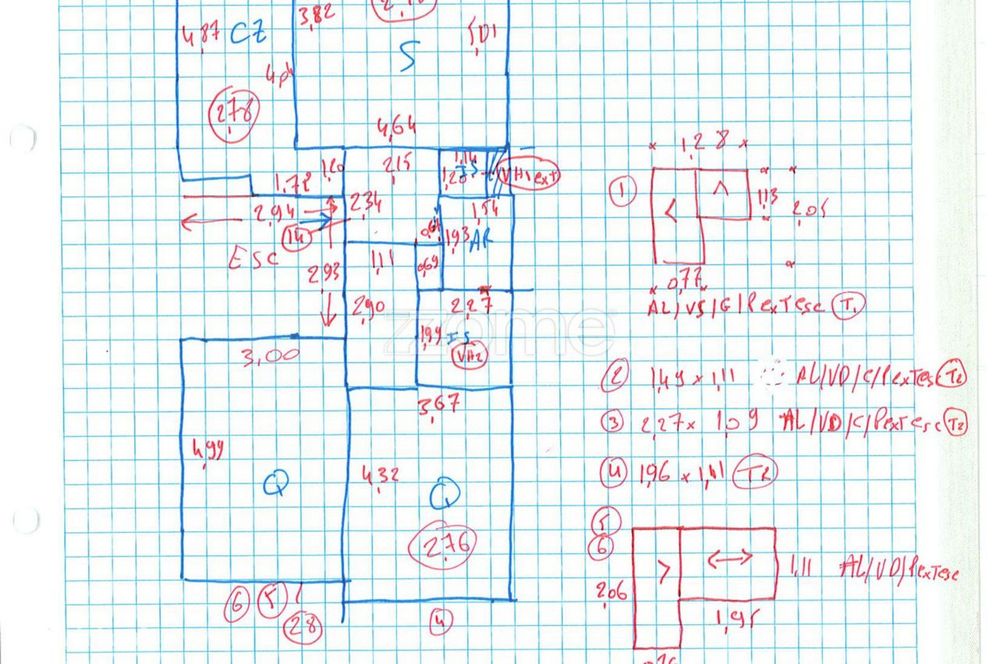 3,82
4,87 CZ
5,01
S
4,64
2,78
1,20
2,15
1,14
1,20
IS
VH1 ext
1,78
2,94
14
2,34
1,54
1,93 AR
ESC
1,11
0,69
2,93
2,90
2,27
1,99 IS
VH2
zome
3,00
3,67
4,99
4,32
Q
Q
2,76
6 5
28
4
1
1,28
1,13
2,05
0,77
AL/VS/G/PextEsc T1
2 1,49 x 1,11 AL/VD/C/PextEsc T2
3 2,27 x 1,09 AL/VD/C/PextEsc T2
4 1,96 x 1,41
5
6
2,06
1,11 AL/VD/PextEsc
1,95